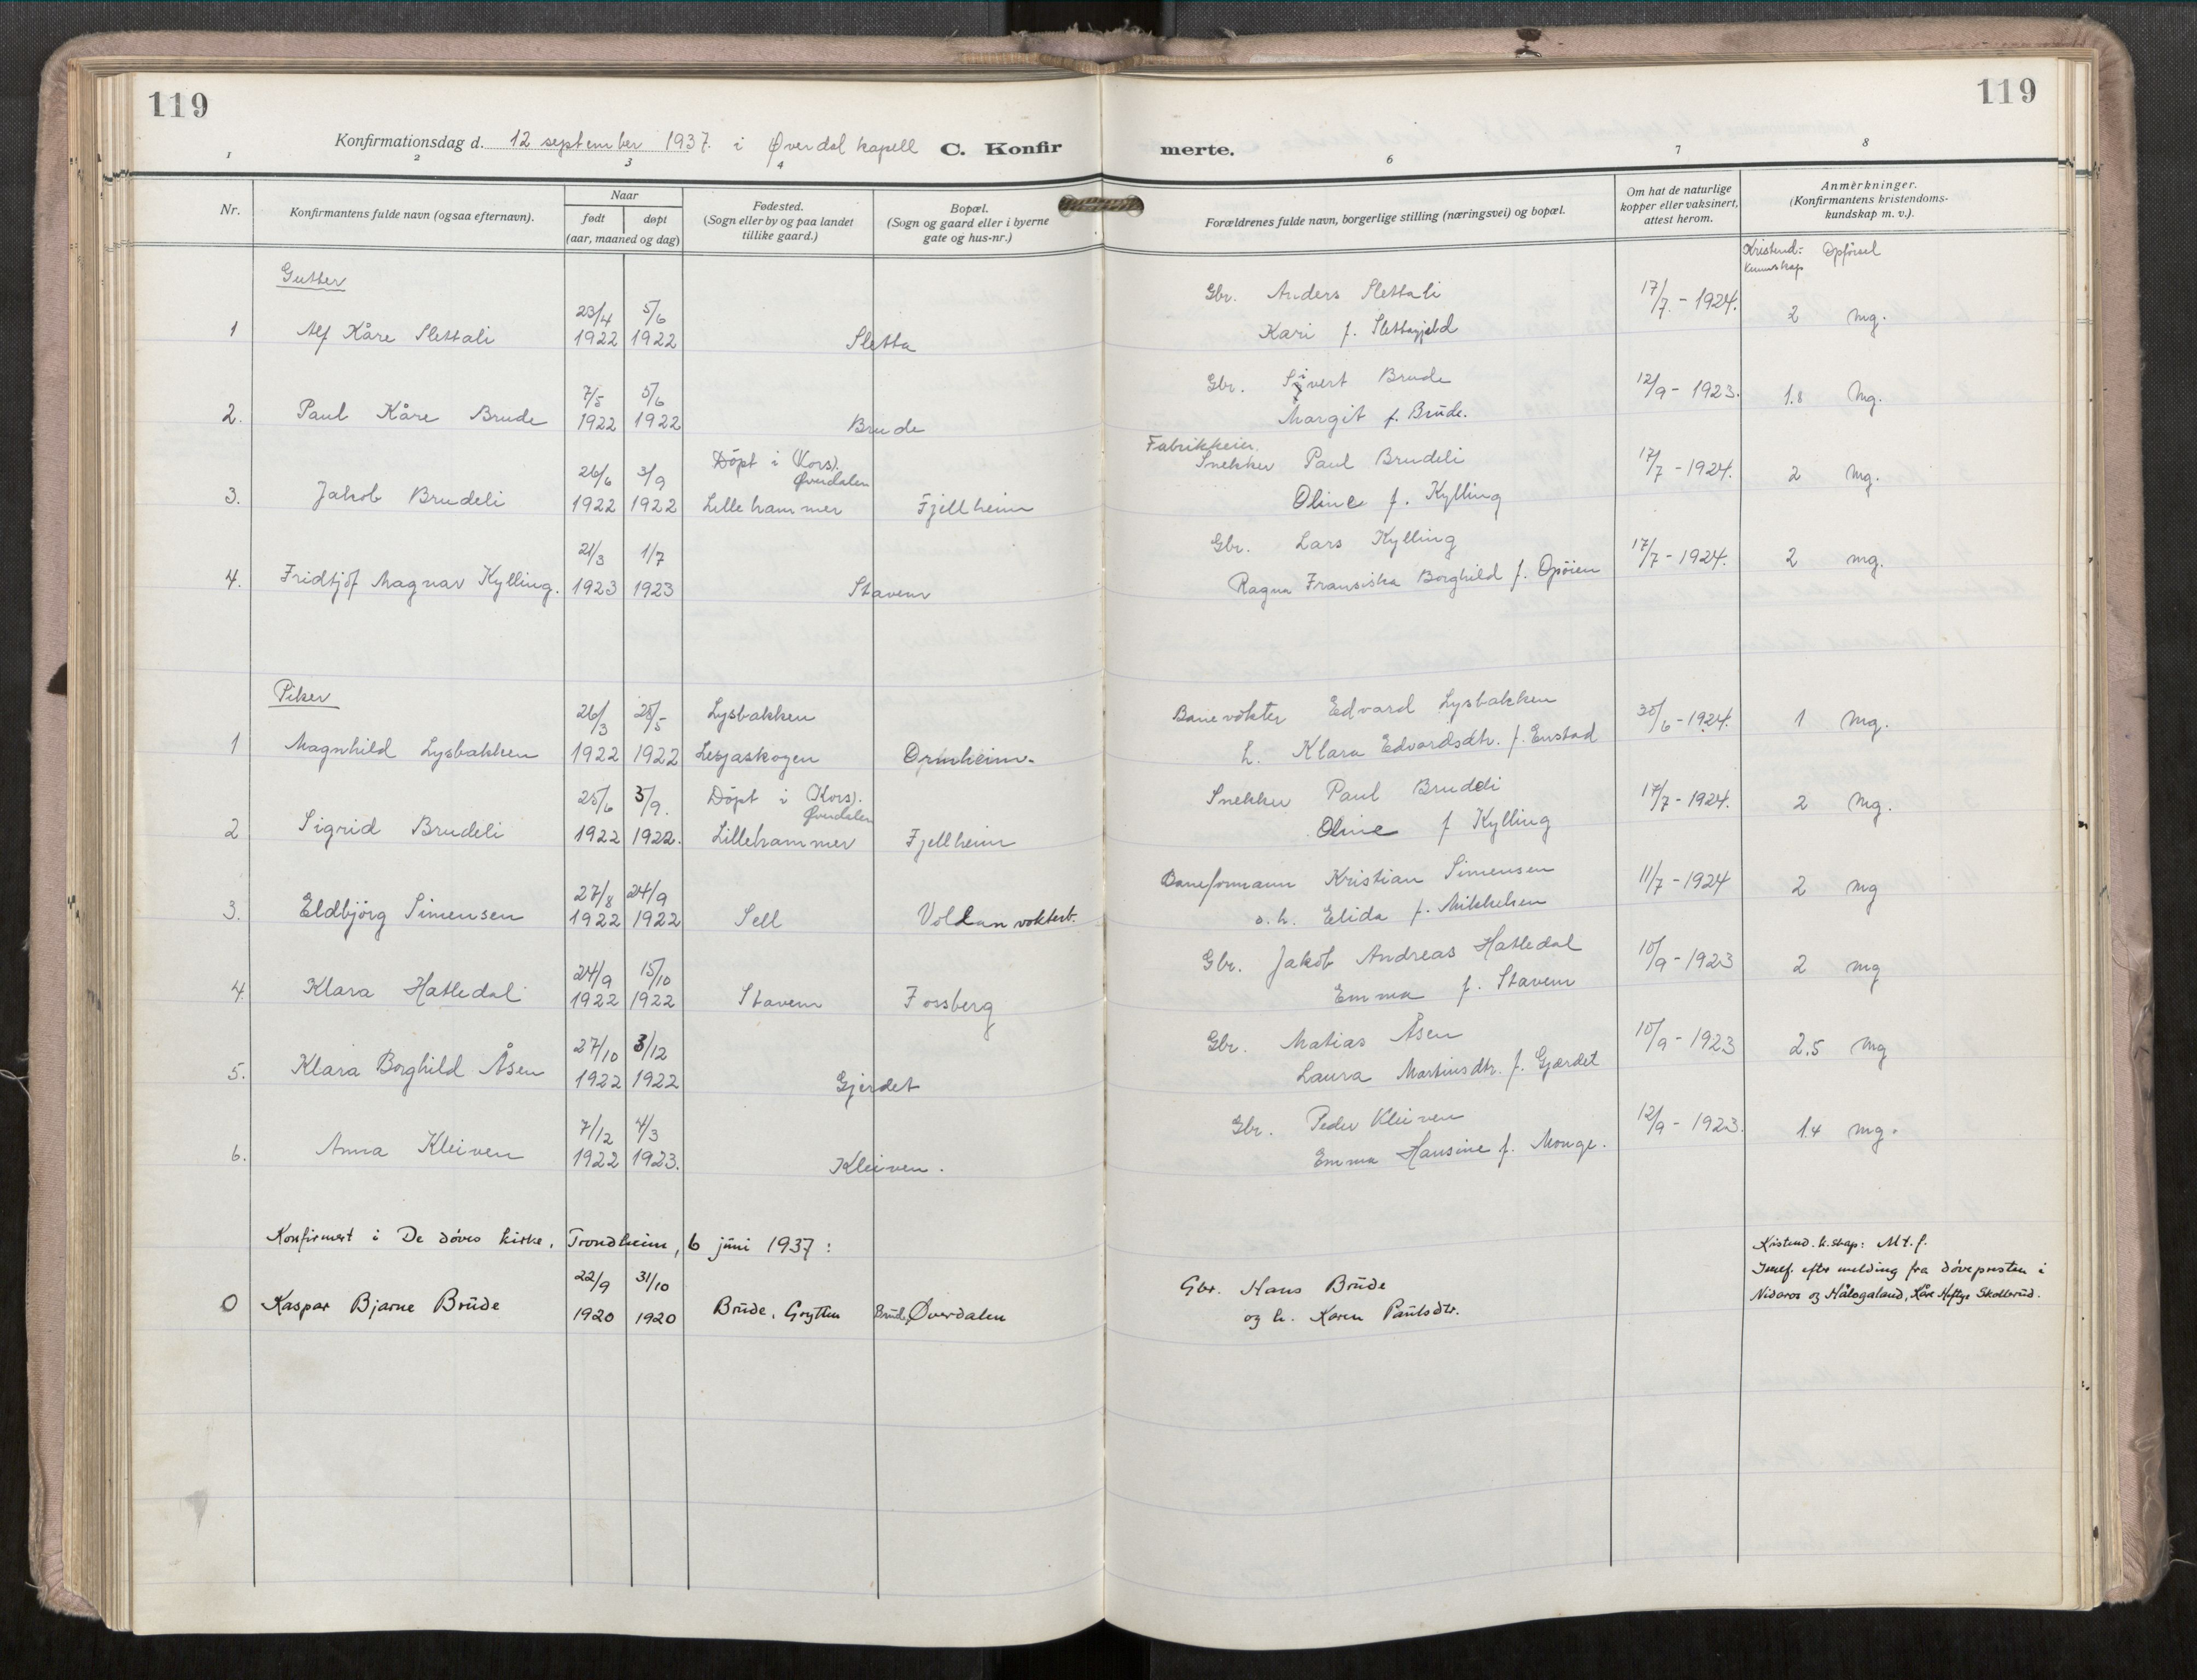 119
119
Konfirmationsdag d. 12 september 1937. i Øverdal kapell C. Konfirmerte.
1 2 3 4 6 7 8
Nr.
Konfirmantens fulde navn (ogsaa efternavn).
Naar
født døpt
(aar, maaned og dag)
Fødested.
(Sogn eller by og paa landet
tillike gaard.)
Bopæl.
(Sogn og gaard eller i byerne
gate og hus-nr.)
Forældrenes fulde navn, borgerlige stilling (næringsvei) og bopæl.
Om hat de naturlige
kopper eller vaksinert,
attest herom.
Anmerkninger.
(Konfirmantens kristendoms-
kundskap m. v.).
Kristend:
kunnskap
Opførsel
Gutter
23/4 5/6 Gbr. Anders Slettali 17/7 - 1924.
1 Alf Kåre Slettali 1922 1922 Sletta Kari f. Slettafjeld 2 mg.
7/5 5/6 Gbr. Sivert Brude 12/9 - 1923.
2. Paul Kåre Brude 1922 1922 Brude Margit f. Brude. 1.8 Mg.
Fabrikkeier.
26/6 3/9 Døpt i (Kors). Øverdalen Snekker Paul Brudeli 17/7 - 1924.
3. Jakob Brudeli 1922 1922 Lillehammer Fjellheim Oline f. Kylling 2 mg.
21/3 1/7 Gbr. Lars Kylling 17/7 - 1924.
4. Fridtjof Magnar Kylling. 1923 1923 Stavem Ragna Fransiska Borghild f. Opøien 2 mg.
Piker
26/3 28/5 Lysbakken Banevokter Edvard Lysbakken 30/6 - 1924.
1 Magnhild Lysbakken 1922 1922 Lesjaskogen Ormheim. h. Klara Edvardsdtr. f. Enstad 1 Mg.
25/6 3/9. Døpt i (Kors). Øverdalen Snekker Paul Brudeli 17/7 - 1924.
2 Sigrid Brudeli 1922 1922. Lillehammer Fjellheim Oline f Kylling 2 Mg.
27/8 24/9 Baneformann Kristian Simensen 11/7 - 1924
3. Eldbjørg Simensen 1922 1922 Sell Voldan vokterb. o. h. Elida f. Mikkelsen 2 mg
24/9 15/10 Gbr. Jakob Andreas Hatledal 10/9 - 1923
4. Klara Hatledal 1922 1922 Stavem Fossberg Emma f. Stavem 2 mg
27/10 3/12 Gbr. Matias Åsen 10/9 - 1923
5. Klara Borghild Åsen 1922 1922 Gjerdet Laura Martinsdtr. f. Gjærdet 2.5 mg
7/12 4/3 Gbr. Peder Kleiven 12/9 - 1923.
6. Anna Kleiven 1922 1923. Kleiven. Emma Hansine f. Monge. 1.4 mg.
Konfirmert i De døves kirke, Trondheim, 6 juni 1937:
Kristend. k.skap: Mt.f.
22/9 31/10 Gbr. Hans Brude
0 Kaspar Bjarne Brude 1920 1920 Brude, Grytten Brude, Øverdalen og h. Karen Paulsdtr.
Innf. efter melding fra døvepresten i
Nidaros og Hålogaland, Kåre Heftye Skollerud.